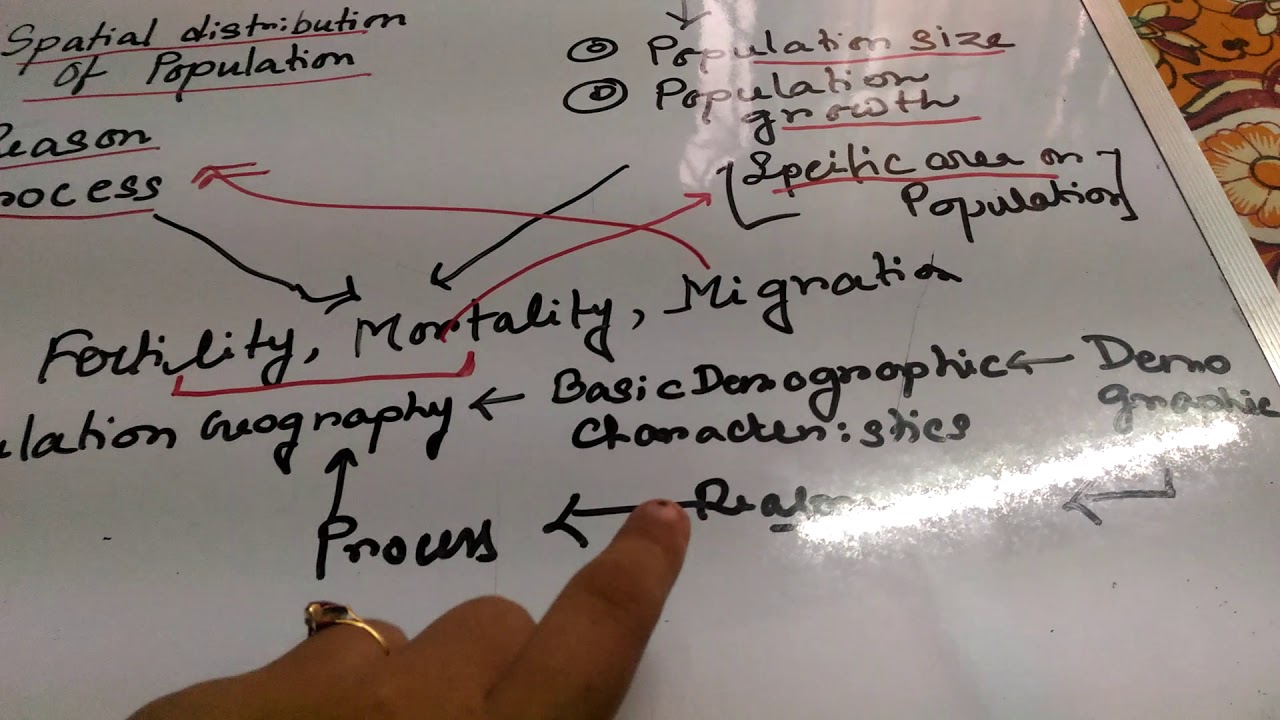 Spatial distribution
of Population
Reason
rocess
Population size
Population
growth
[Speific area on
Population]
Fertility, Mortality, Migration
ulation Geography ← Basic Demographic ← Demo
Characteristics
graphic
Process ← Reason ←